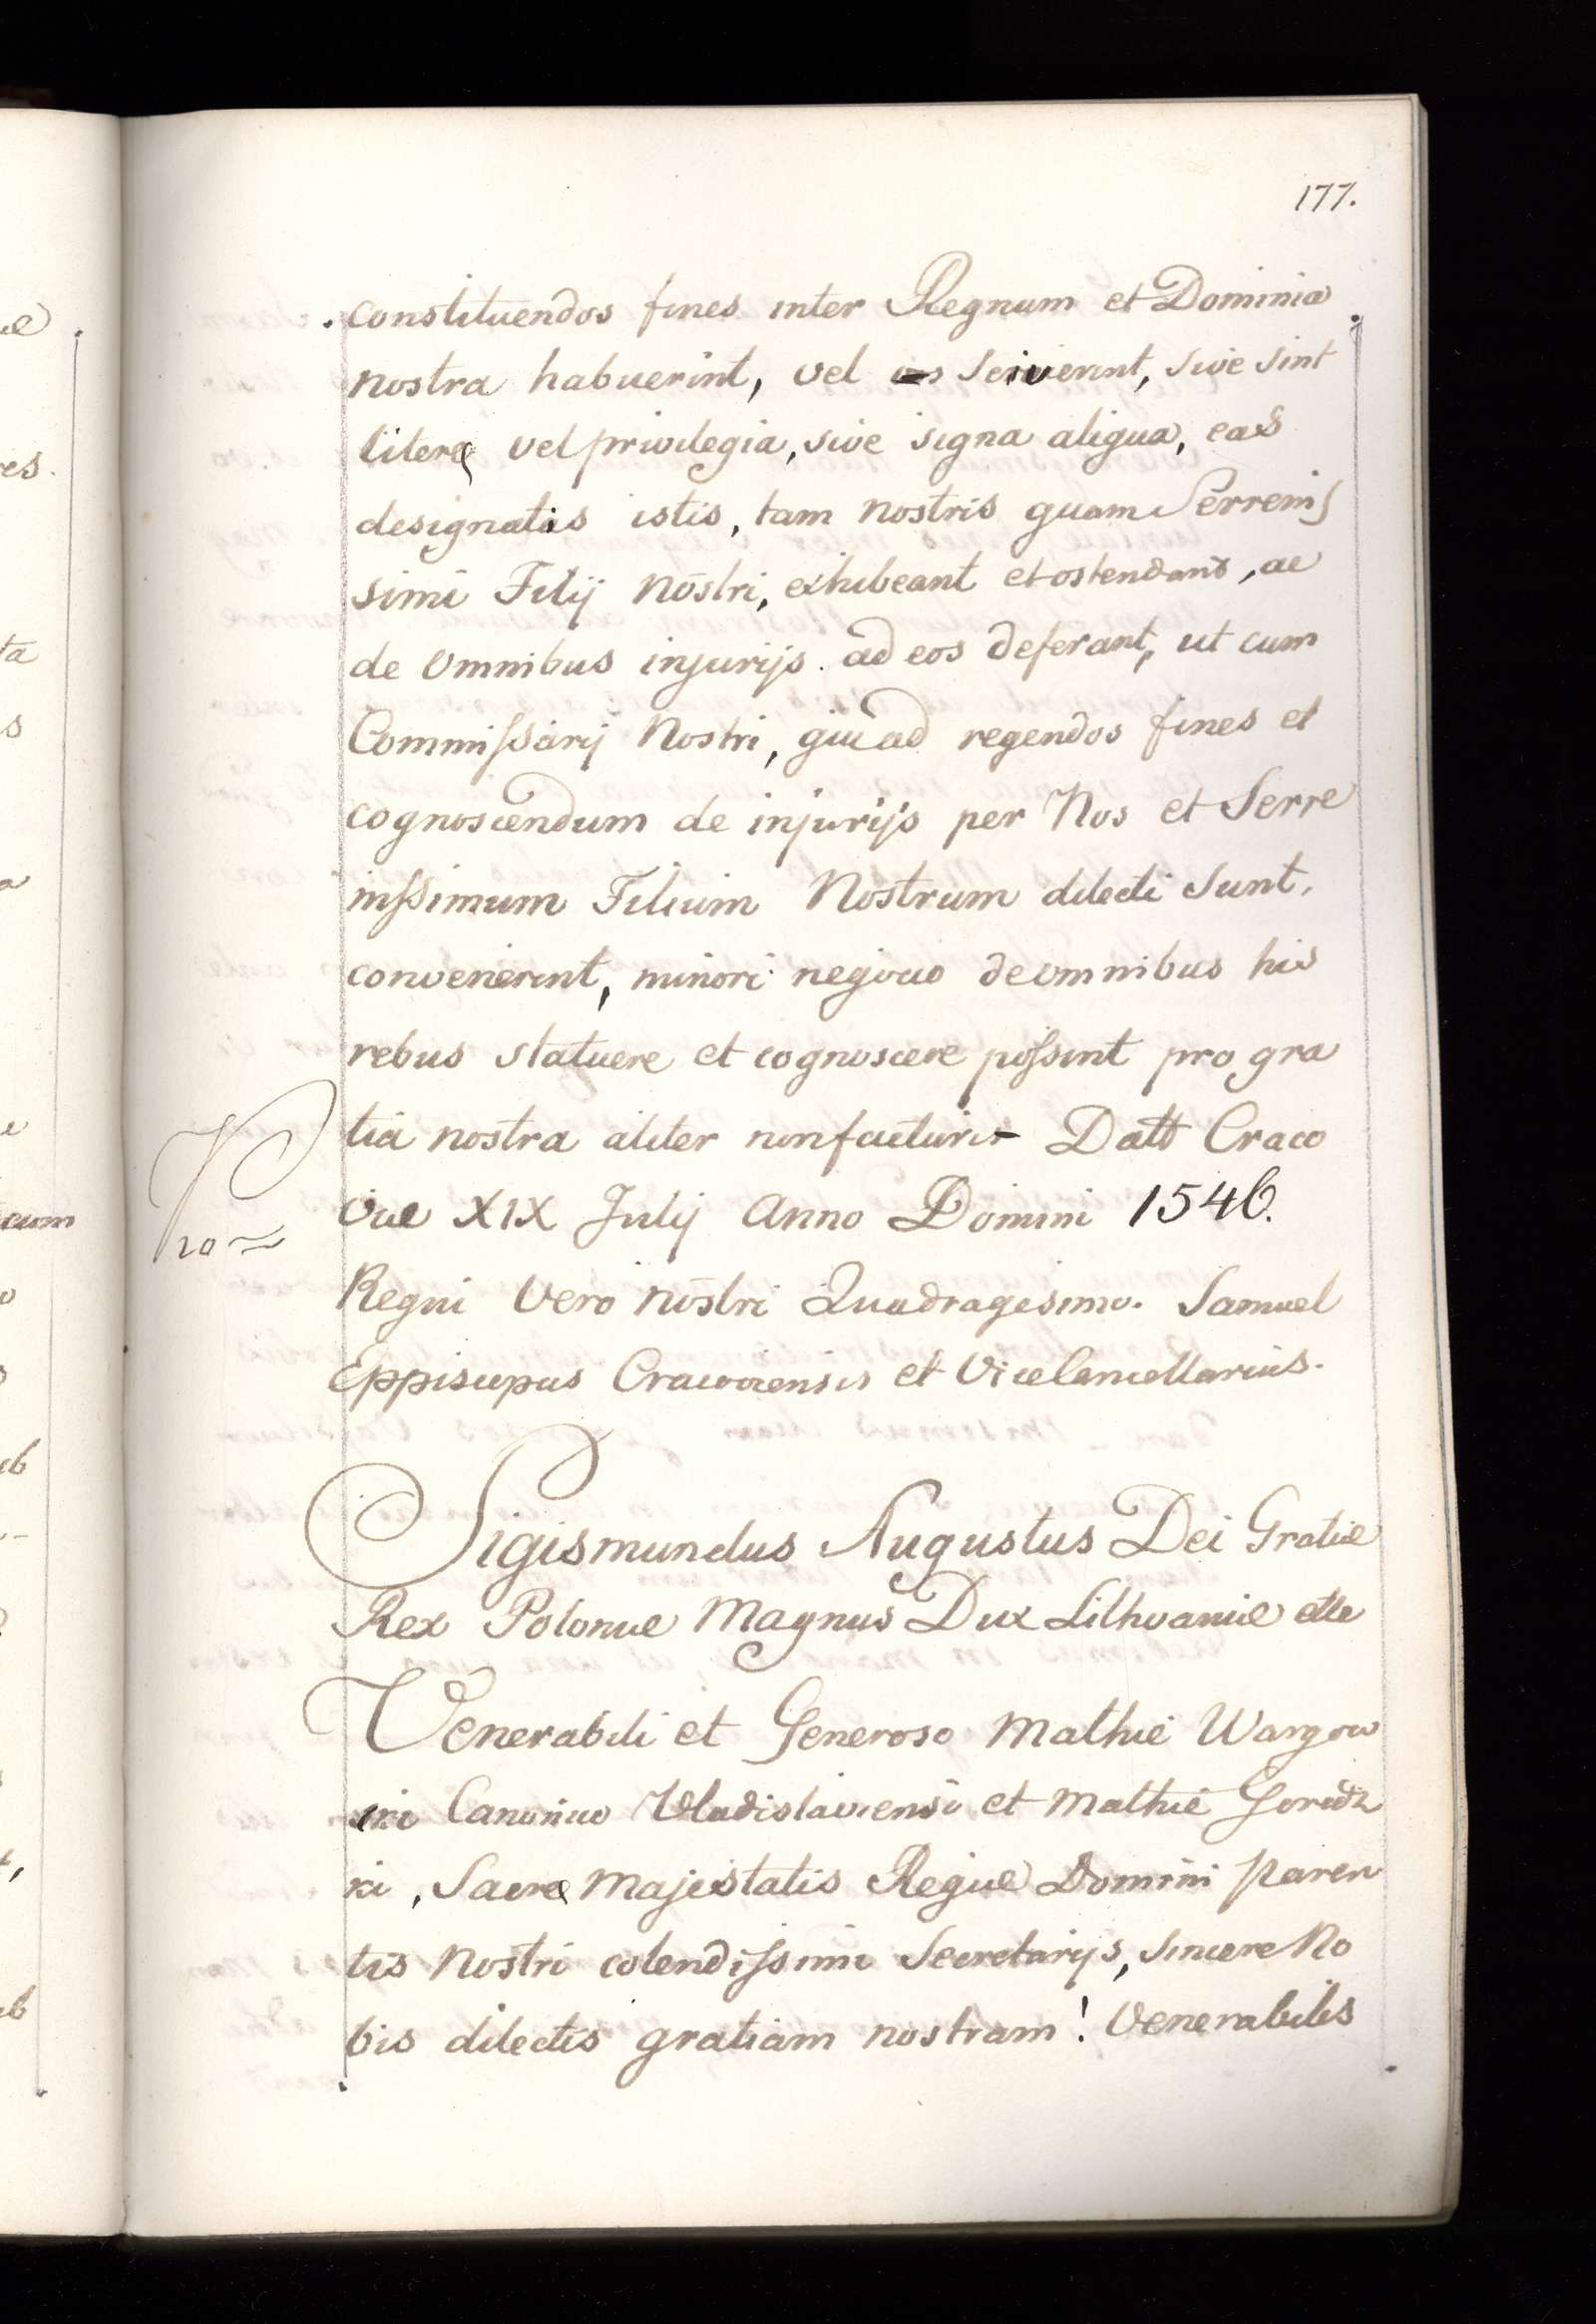 177.
constituendos fines inter Regnum et Dominia
nostra habuerint, vel sciverint, sive sint
literæ vel privilegia, sive signa aliqua, eas
designatis istis, tam nostris quam Serrenis
simi Filij nostri, exhibeant et ostendant, ac
de omnibus injurijs ad eos deferant, ut cum
Commissarij Nostri, qui ad regendos fines et
cognoscendum de injurijs per Nos et Serre
inssimum Filium Nostrum dilecti sunt,
convenerint, minori negocio de omnibus his
rebus statuere et cognoscere possint pro gra
tia nostra aliter non facturi Datt Craco
viæ XIX Julij Anno Domini 1546.
Regni vero nostri Quadragesimo. Samuel
Eppiscopus Cracoviensis et Vicecancellarius.
Sigismundus Augustus Dei Gratiæ
Rex Poloniæ Magnus Dux Lithvaniæ ette
Venerabili et Generoso Mathie Wargow
ski Canonico Vladislaviensi et Mathie
ki, Sacræ Majestatis Regiæ Domini Paren
tis Nostri colendissimi Secretarijs, sincere No
bis dilectis gratiam nostram! Venerabilis